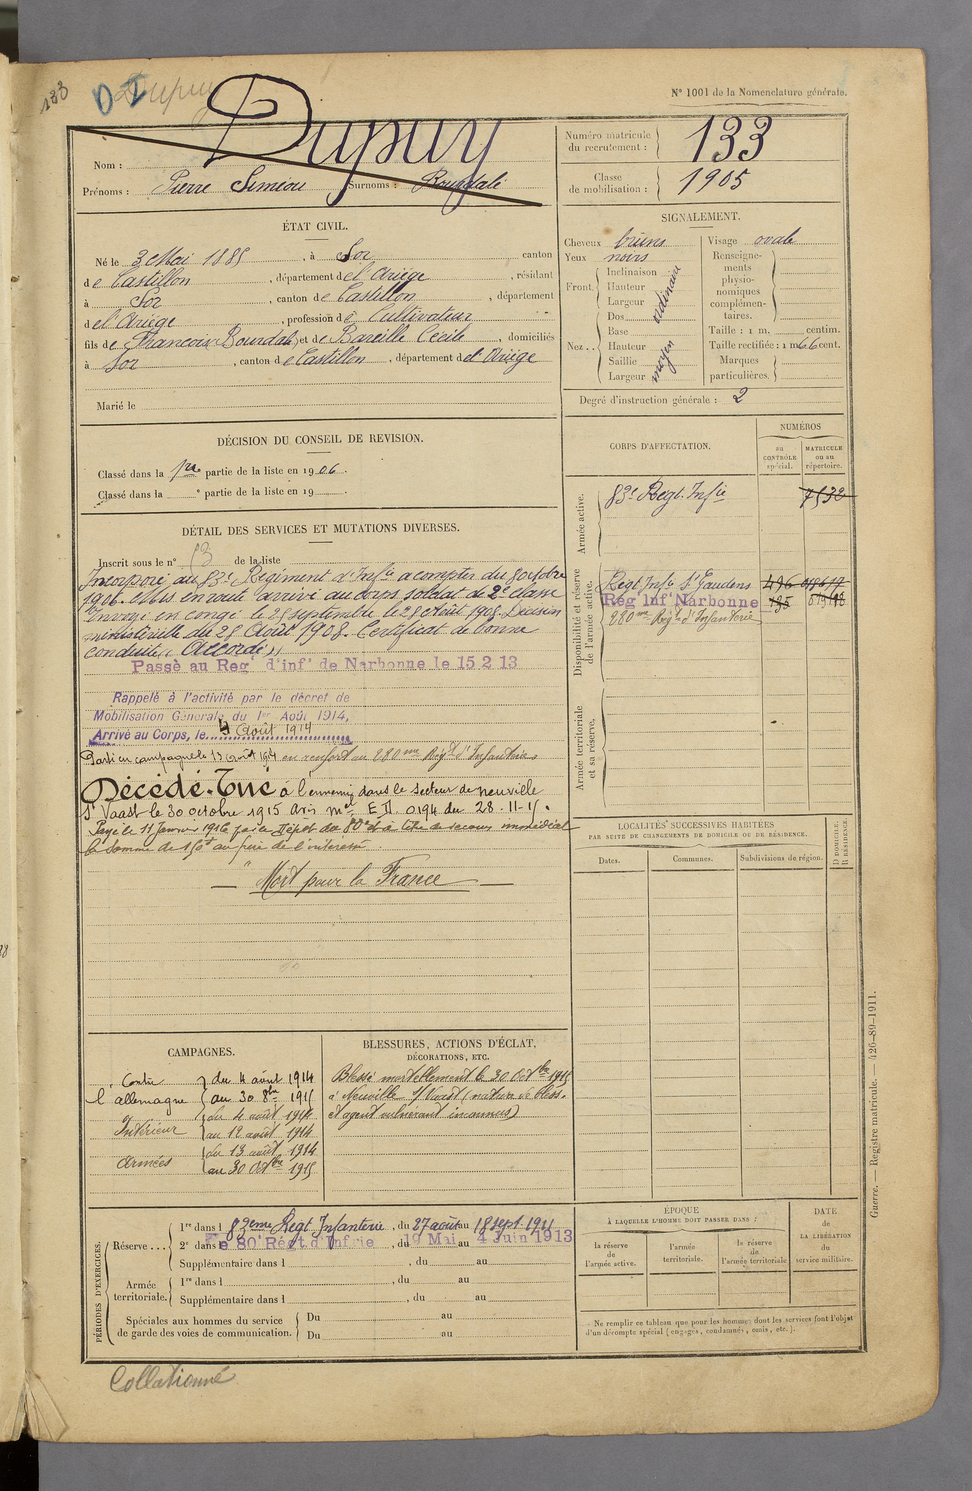 133
D I
Dupuy
N° 1001 de la Nomenclature générale.
Nom : Dupuy
Prénoms : Pierre Siméon Surnoms : Bourdale
Numéro matricule du recrutement : 133
Classe de mobilisation : 1905
ÉTAT CIVIL.
Né le 3 Mai 1885, à Sor canton
de Castillon, département del Ariège, résidant
à Sor, canton de Castillon, département
del'Ariège, profession de Cultivateur
fils de Francois Bourdale et de Bareille Cécile, domiciliés
à Sor, canton de Castillon, département del'Ariège
Marié le
SIGNALEMENT.
Cheveux bruns
Yeux noirs
Front. Inclinaison
Hauteur
Largeur
ordinaire
Nez.. Dos
Base
Hauteur
Saillie
Largeur
moyen
Visage ovale
Renseigne-
ments
physio-
nomiques
complémen-
taires.
Taille : 1 m. centim.
Taille rectifiée : 1 m 66 cent.
Marques
particulières.
Degré d'instruction générale : 2
DÉCISION DU CONSEIL DE REVISION.
Classé dans la 1re partie de la liste en 1906.
Classé dans la e partie de la liste en 19
DÉTAIL DES SERVICES ET MUTATIONS DIVERSES.
Inscrit sous le n° 13 de la liste
Incorporé au 83e Régiment d'Infie a compter du 8 octobre
1906. Mis en route arrivé au corps soldat de 2e classe
Envoyé en congé le 28 septembre le 28 Août 1908. Décision
ministérielle du 28 Août 1908. Certificat de bonne
conduite "Accordé"
Passé au Reg' d'inf' de Narbonne le 15 2 13
Rappelé à l'activité par le décret de
Mobilisation Générale du 1er Août 1914,
Arrivé au Corps, le 4 Août 1914
Parti en campagne le 13 août 1914 en renfort au 280me Régt d'Infanterie
Décédé. Tué à l'ennemi dans le secteur de neuville
St Vaast le 30 octobre 1915 avis mel E.D. 0194 du 28-11-15.
Payé le 11 Janvier 1916 par le Dépôt du 80e et à titre de secours immédiat
la somme de 150f au père de l'intéressé.
— Mort pour la France —
CORPS D'AFFECTATION.
NUMÉROS
au
CONTRÔLE
spécial.
MATRICULE
ou au
répertoire.
Armée active.
83e Régt. Infie
7532
Disponibilité et réserve
de l'armée active.
Régt Infie St Gaudens 496
Reg Inf' Narbonne 195
280me Régt d'Infanterie
Armée territoriale
et sa réserve.
LOCALITÉS SUCCESSIVES HABITÉES
PAR SUITE DE CHANGEMENTS DE DOMICILE OU DE RÉSIDENCE.
Dates.
Communes.
Subdivisions de région.
D DOMICILE.
R RÉSIDENCE.
CAMPAGNES.
Contre
l'allemagne
du 4 août 1914
au 30 8bre 1915
Intérieur
du 4 août 1914
au 12 août 1914
Armées
du 13 août 1914
au 30 Octbre 1915
BLESSURES, ACTIONS D'ÉCLAT,
DÉCORATIONS, ETC.
Blessé mortellement le 30 Octbre 1915
à Neuville St Vaast (nature de bless.
et agent vulnérant inconnus)
PÉRIODES D'EXERCICES.
Réserve... 1re dans l 83eme Régt Infanterie, du 27 août au 18 sept. 1911
2e dans l e 80' Régt d'Infrie, du 19 Mai au 4 Juin 1913
Supplémentaire dans l , du au
Armée
territoriale. 1re dans l , du au
Supplémentaire dans l , du au
Spéciales aux hommes du service
de garde des voies de communication.
Du au
Du au
ÉPOQUE
À LAQUELLE L'HOMME DOIT PASSER DANS :
la réserve
de
l'armée active.
l'armée
territoriale.
la réserve
de
l'armée territoriale
DATE
de
LA LIBÉRATION
du
service militaire.
Ne remplir ce tableau que pour les hommes dont les services font l'objet
d'un décompte spécial (engagés, condamnés, omis, etc.).
Guerre. — Registre matricule. — 426-89-1911.
Collationné